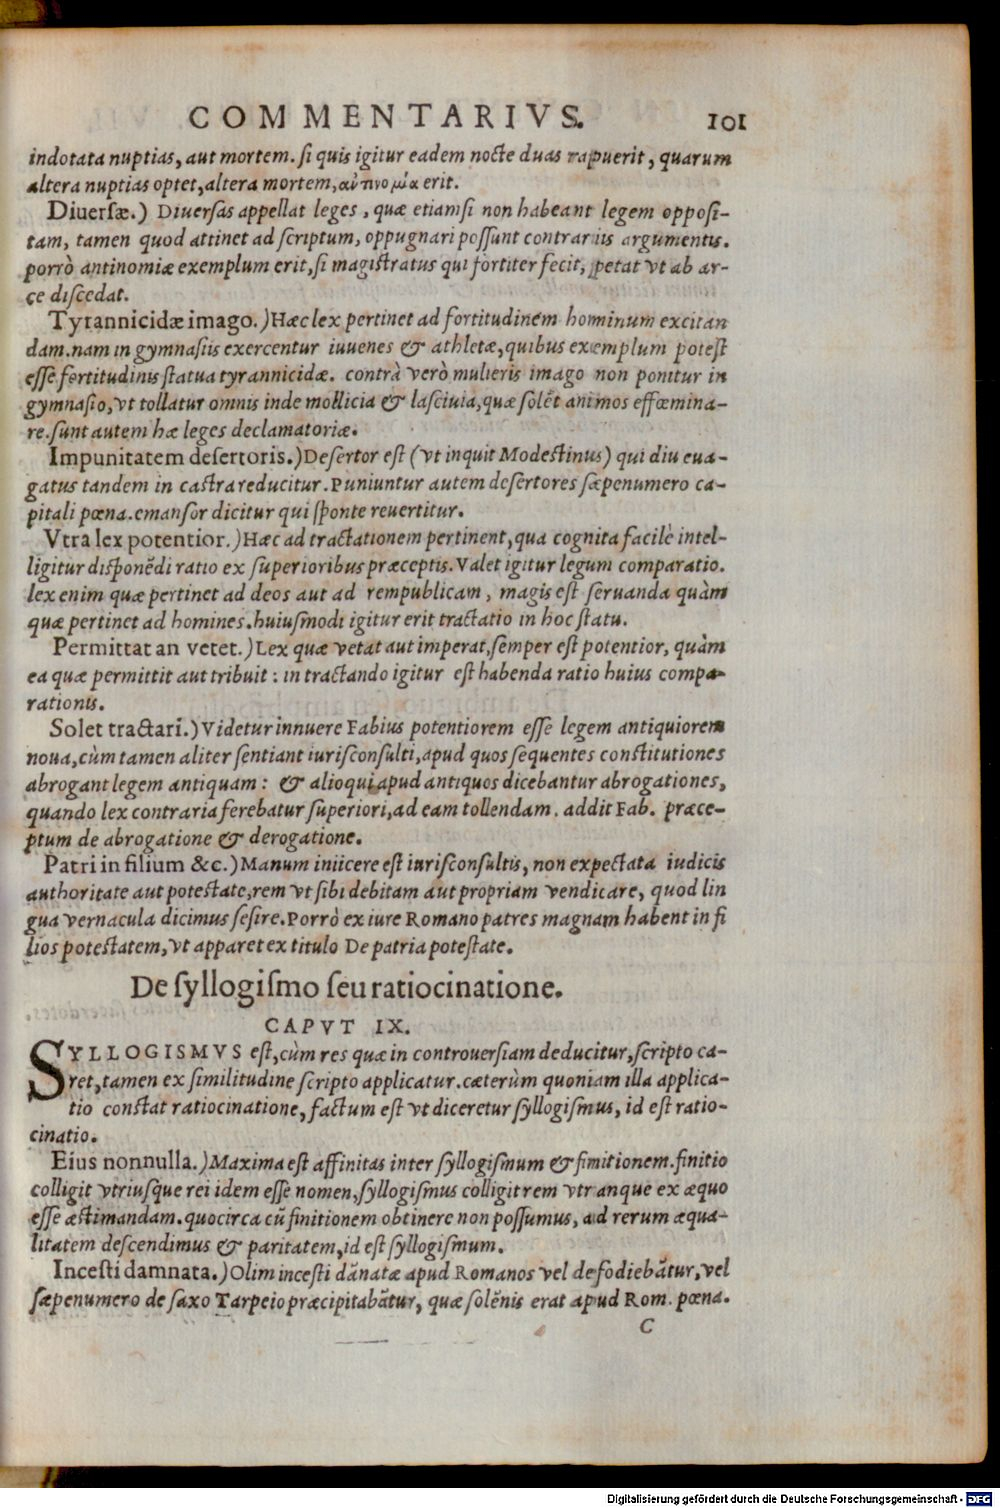 COMMENTARIVS. 101
indotata nuptias, aut mortem. si quis igitur eadem nocte duas rapuerit, quarum
altera nuptias optet, altera mortem, erit.
Diuersæ.) Diuersas appellat leges, quæ etiamsi non habeant legem opposi-
tam, tamen quod attinet ad scriptum, oppugnari possunt contrariis argumentis.
porrò antinomiæ exemplum erit, si magistratus qui fortiter fecit, petat vt ab ar-
ce discedat.
Tyrannicidæ imago.) Hæc lex pertinet ad fortitudinem hominum excitan
dam. nam in gymnasiis exercentur iuuenes & athletæ, quibus exemplum potest
esse fortitudinis statua tyrannicidæ. contrà verò mulieris imago non ponitur in
gymnasio, vt tollatur omnis inde mollicia & lasciuia, quæ solẽt animos effœmina-
re. sunt autem hæ leges declamatoriæ.
Impunitatem desertoris.) Desertor est (vt inquit Modestinus) qui diu eua-
gatus tandem in castra reducitur. Puniuntur autem desertores sæpenumero ca-
pitali pœna. emansor dicitur qui sponte reuertitur.
Vtra lex potentior.) Hæc ad tractationem pertinent, qua cognita facilè intel-
ligitur disponẽdi ratio ex superioribus præceptis. Valet igitur legum comparatio.
lex enim quæ pertinet ad deos aut ad rempublicam, magis est seruanda quàm
quæ pertinet ad homines. huiusmodi igitur erit tractatio in hoc statu.
Permittat an vetet.) Lex quæ vetat aut imperat, semper est potentior, quàm
ea quæ permittit aut tribuit: in tractando igitur est habenda ratio huius compa-
rationis.
Solet tractari.) Videtur innuere Fabius potentiorem esse legem antiquiorem
noua, cùm tamen aliter sentiant iurisconsulti, apud quos sequentes constitutiones
abrogant legem antiquam: & alioqui apud antiquos dicebantur abrogationes,
quando lex contraria ferebatur superiori, ad eam tollendam. addit Fab. præce-
ptum de abrogatione & derogatione.
Patri in filium &c.) Manum iniicere est iurisconsultis, non expectata iudicis
authoritate aut potestate, rem vt sibi debitam aut propriam vendicare, quod lin
gua vernacula dicimus sesire. Porrò ex iure Romano patres magnam habent in fi
lios potestatem, vt apparet ex titulo De patria potestate.
De syllogismo seu ratiocinatione.
CAPVT IX.
SYLLOGISMVS est, cùm res quæ in controuersiam deducitur, scripto ca-
ret, tamen ex similitudine scripto applicatur. cæterùm quoniam illa applica-
tio constat ratiocinatione, factum est vt diceretur syllogismus, id est ratio-
cinatio.
Eius nonnulla.) Maxima est affinitas inter syllogismum & finitionem. finitio
colligit vtriusque rei idem esse nomen, syllogismus colligit rem vtranque ex æquo
esse æstimandam. quocirca cũ finitionem obtinere non possumus, ad rerum æqua-
litatem descendimus & paritatem, id est syllogismum.
Incesti damnata.) Olim incesti dãnatæ apud Romanos vel defodiebãtur, vel
sæpenumero de saxo Tarpeio præcipitabãtur, quæ solẽnis erat apud Rom. pœna.
C
Digitalisierung gefördert durch die Deutsche Forschungsgemeinschaft - DFG